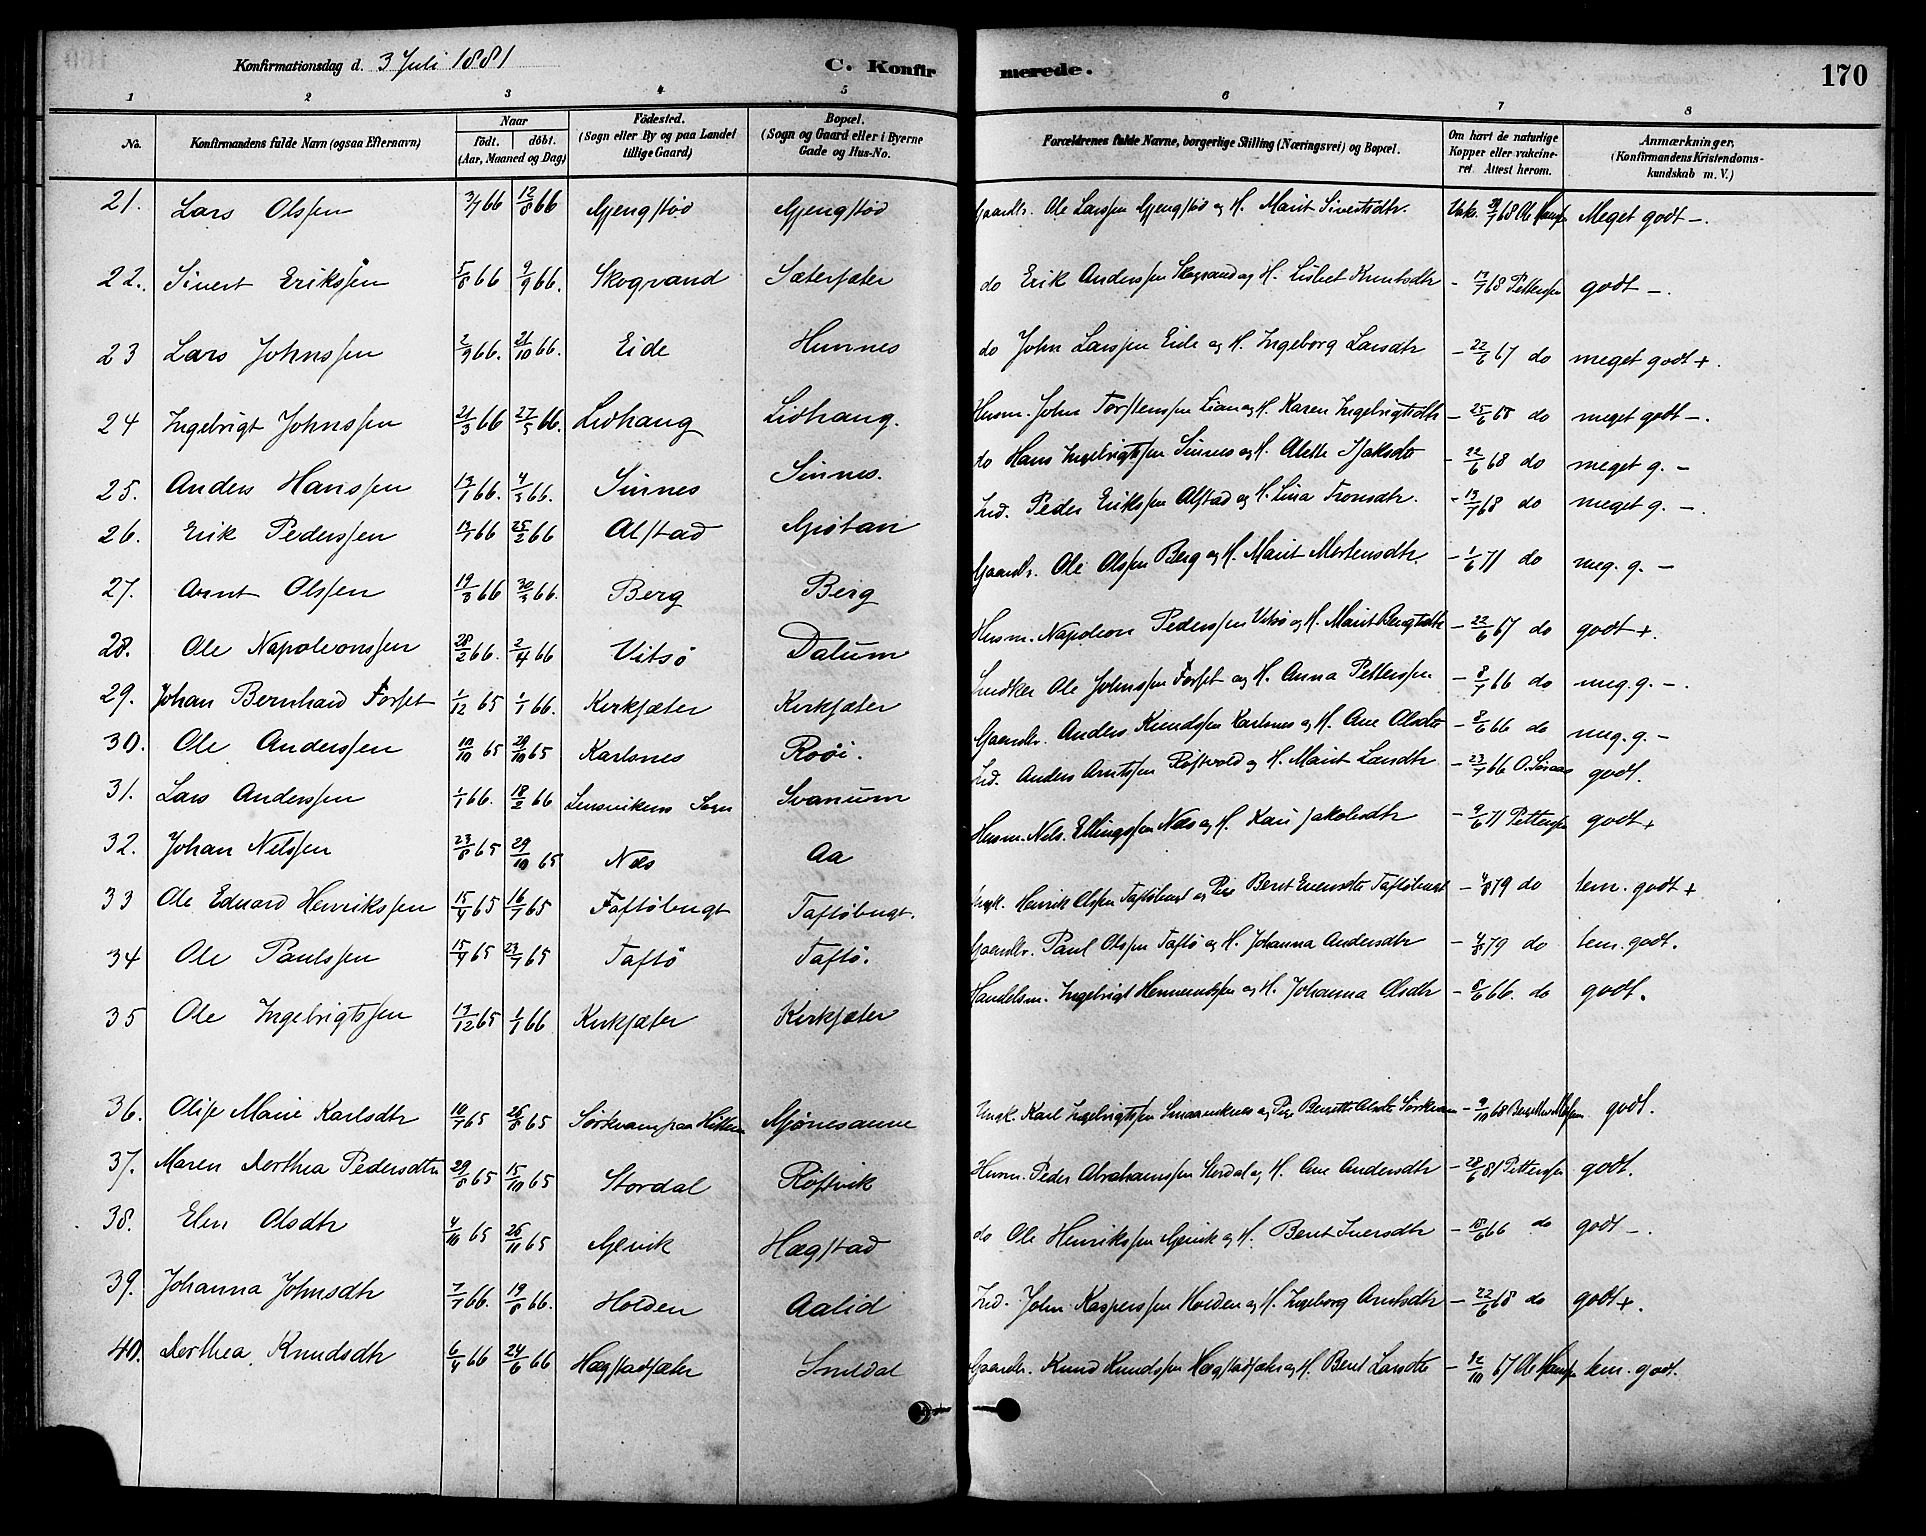 Konfirmationsdag d. 3 Juli 1881
C. Konfirmerede.
170
1 2 3 4 5 6 7 8
No. Konfirmandens fulde Navn (ogsaa Efternavn) Naar födt. döbt. (Aar, Maaned og Dag) Födested. (Sogn eller By og paa Landet tillige Gaard) Bopæl. (Sogn og Gaard eller i Byerne Gade og Hus-No. Forældrenes fulde Navne, borgerlige Stilling (Næringsvei) og Bopæl. Om havt de naturlige Kopper eller vakcineret. Attest herom. Anmærkninger, (Konfirmandens Kristendomskundskab m. V.)
21. Lars Olssen 3/7 66 12/8 66 Gjengstød Gjengstød Gaardbr. Ole Larssen Gjengstød og H. Marit Sivertsdtr. Meget godt -.
22. Sivert Erikssen 5/8 66 9/9 66. Skogrand Sætersæter do Erik Anderssen Skogrand og H. Lisbet Knutsdtr - 17/7 68 Petterssen godt -.
23 Lars Johnssen 2/9 66. 21/10 66. Eide Hunnes do John Larssen Eide og H. Ingeborg Larsdtr - 22/6 67 do meget godt +.
24 Ingebrigt Johnssen 21/3 66 27/5 66. Lidhaug Lidhaug. Husm. John Torstenssen Lian og H. Karen Ingebrigtsdtr - 25/6 68 do meget godt -.
25. Anders Hanssen 66. 66. Sinnes Sinnes. do Hans Ingebrigtssen Sinnes og H. - 22/6 68 do meget g. -
26. Erik Pederssen 66 25/2 66 Alstad Ind. Peder Erikssen Alstad og H. - 13/7 68 do meget g. -.
27. Arnt Olssen 19/3 66 66. Berg Berg Gaardbr. Ole Olssen Berg og H. Marit Mortensdtr. - 1/6 71 do meg. g. -
28. Ole Napoleonssen 28/2 66. 2/4 66 Vitsø Dalum Husm. Napoleon Pederssen Vitsø og H. Marit - 22/6 67 do godt +.
29. Johan Bernhard Forset 1/12 65 1/1 66. Kirksæter Kirksæter Snedker Ole Johnssen Forset og H. Anna Petterssen - 66 do meg. g. -.
30. Ole Anderssen 10/10 65 29/10 65 Karlsnes Roøi. Gaardbr. Anders Knudssen Karlsnes og H. Ane Olsdtr - 8/6 66 do meg. g. -
31. Lars Anderssen 1/1 66. 18/2 66 Lensvikens Sogn Svanum Ind. Anders Arntssen Røstvold og H. Marit Larsdtr - 23/7 66 godt.
32. Johan Nilssen 23/8 65 29/10 65 Næs Aa Husm. Nils Ellingssen Næs og H. Kari Jakobsdtr - 9/6 71 Petterssen godt +
33 Ole Eduard Henrikssen 15/4 65 16/7 65 Taftøbugt Taftøbugt. Ungk. Henrik Olssen Taftøbugt og Pige Beret Evensdtr Taftøbugt - 4/8 79 do tem. godt +
34 Ole Paulssen 15/4 65 23/7 65 Taftö Taftø. Gaardbr. Paul Olssen Taftø og H. Johanna Andersdtr - 4/8 79 do tem. godt.
35 Ole Ingebrigtssen 17/12 65 1/1 66 Kirksæter Kirksæter Handelsm. Ingebrigt og H. Johanna Olsdtr - 8/6 66. do godt.
36. Olise Marie Karlsdtr 10/7 65 26/8 65 Sørkvam paa Hitteren Mjønesaune Ungk. Karl Ingebrigtssen og Pige Olsdtr Sørkvam - 9/10 68 godt.
37. Maren Dorthea Pedersdtr 29/8 65 15/10 65 Stordal Røstvik Husm. Peder Abrahamssen Stordal og H. Ane Andersdtr - 28/6 81 Petterssen godt.
38. Elen Olsdtr 4/10 65 26/11 65 Gjevik Hægstad do Ole Henrikssen Gjevik og H. Beret Iversdtr - 18/6 66 do godt -.
39. Johanna Johnsdtr 7/7 66. 19/8 66. Holden Aalid Ind. John Kasperssen Holden og H. Ingeborg Arntsdtr - 22/6 68 do godt +.
40. Dorthea Knudsdtr 6/4 66 24/6 66 Hægstadsæter Snildal Gaardbr. Knud Knudssen Hægstadsæter og H. Beret Larsdtr - 12/10 67 tem. godt.